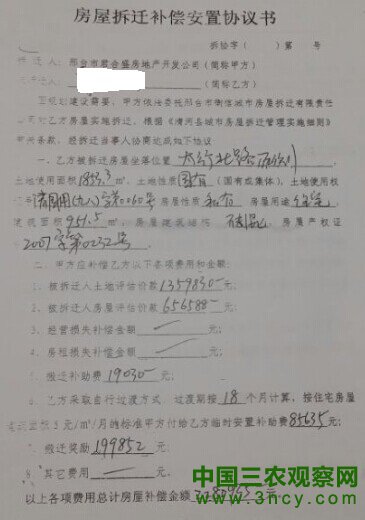 房屋拆迁补偿安置协议书
拆协字( )第 号
拆迁人：邢台市君合盛房地产开发公司（简称甲方）
（简称乙方）
建设需要，甲方依法委托邢台市衡信城市房屋拆迁有限责任
乙方房屋实施拆迁。根据《清河县城市房屋拆迁管理实施细则》
有关条款，经拆迁当事人协商达成如下协议
一、乙方被拆迁房屋座落位置 太行北路西侧
土地使用面积1853.3m²，土地性质国有（国有或集体），土地使用权
字第060号 房屋性质私有 房屋用途住宅
建筑面积951.5m²，房屋建筑结构 砖混 房屋产权证
2007字第0232号
二、甲方应补偿乙方以下各项费用和金额：
1、被拆迁人土地评估价款1359830元；
2、被拆迁人房屋评估价款656588元；
3、经营损失补偿金额 元；
4、房租损失补偿金额 元；
5、搬迁补助费 19030 元；
6、乙方采取自行过渡方式，过渡期按18个月计算，按住宅房屋
建筑面积5元/m²/月的标准甲方付给乙方临时安置补助费85635元；
7、搬迁奖励 199852 元；
8、其它费用 元；
以上各项费用总计房屋补偿金额 元；
中国三农观察网
www.3ncy.com